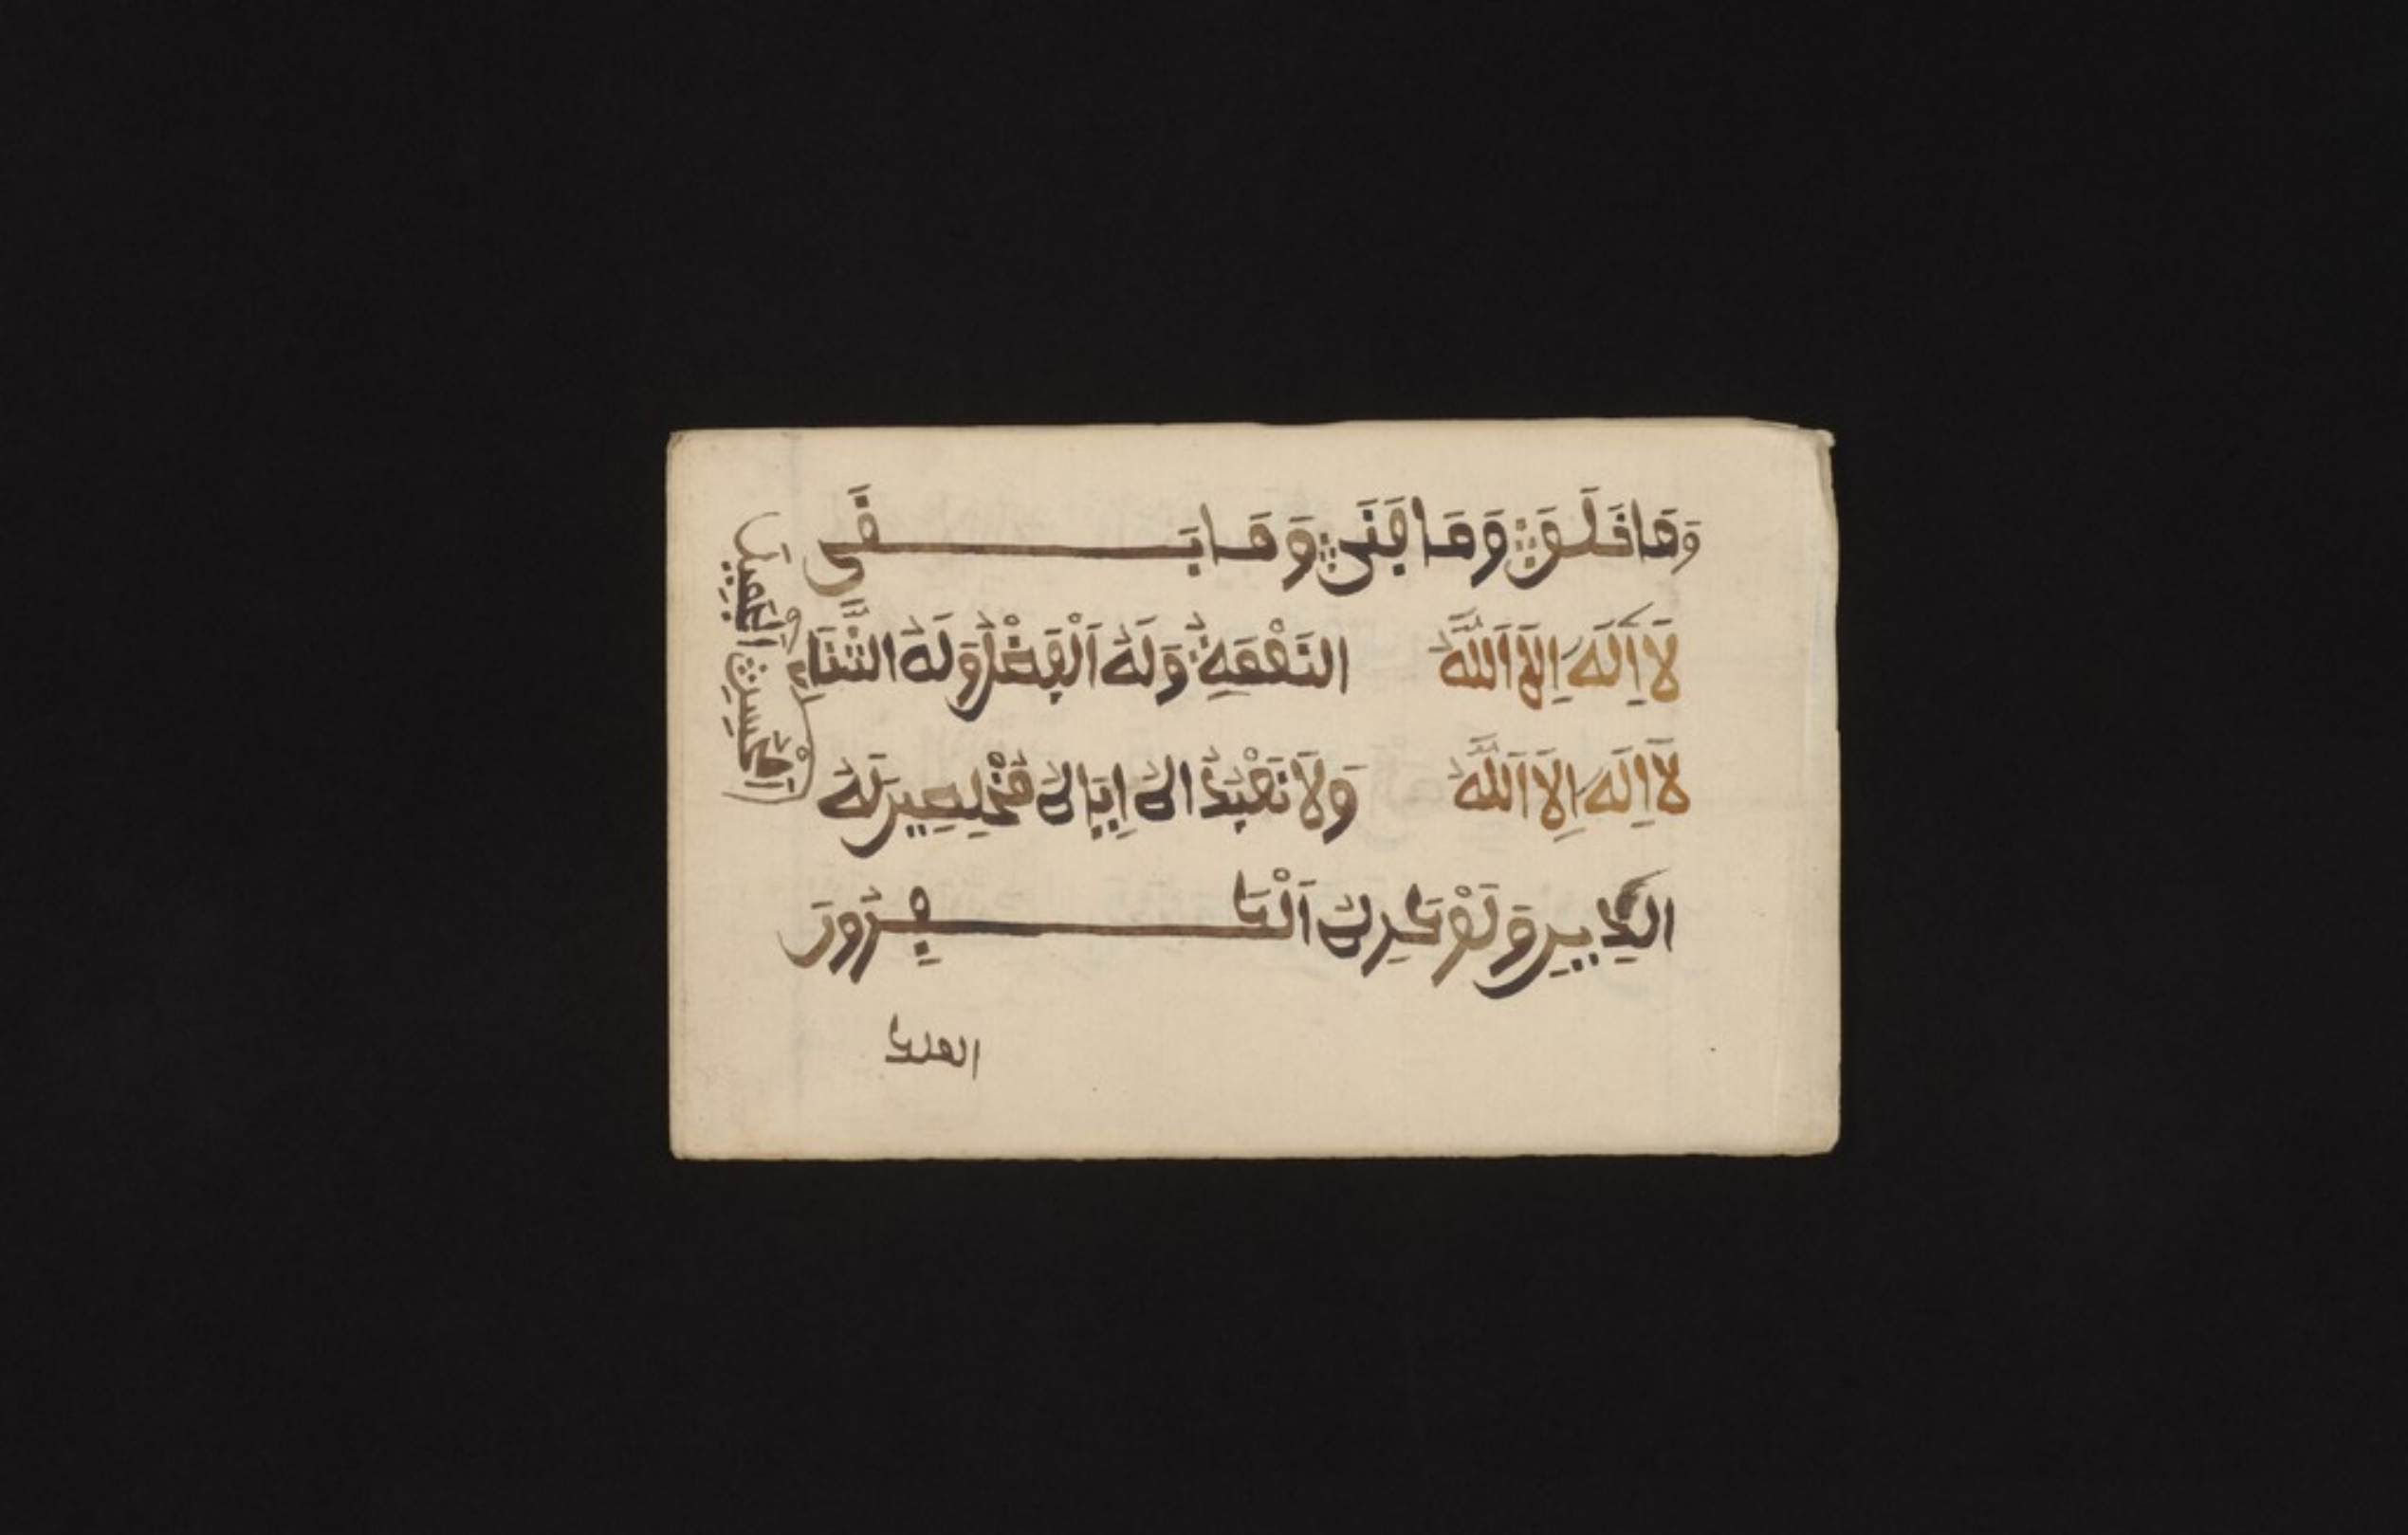 وَمَا خَلَقَ وَمَا فَنَى وَمَا بَقَى
لَا إِلَهَ إِلَّا اللَّهُ النَّعْمَةِ وَلَهُ الْفَضْلُ وَلَهُ الثَّنَا
لَا إِلَهَ إِلَّا اللَّهُ وَلَا نَعْبُدُ إِيَّاهُ مُخْلِصِيرَ لَهُ
الدِّيرِ وَلَوْ كَرِهَ الْكَافِرُورَ
الْحَسَنُ الْجَمِيلُ